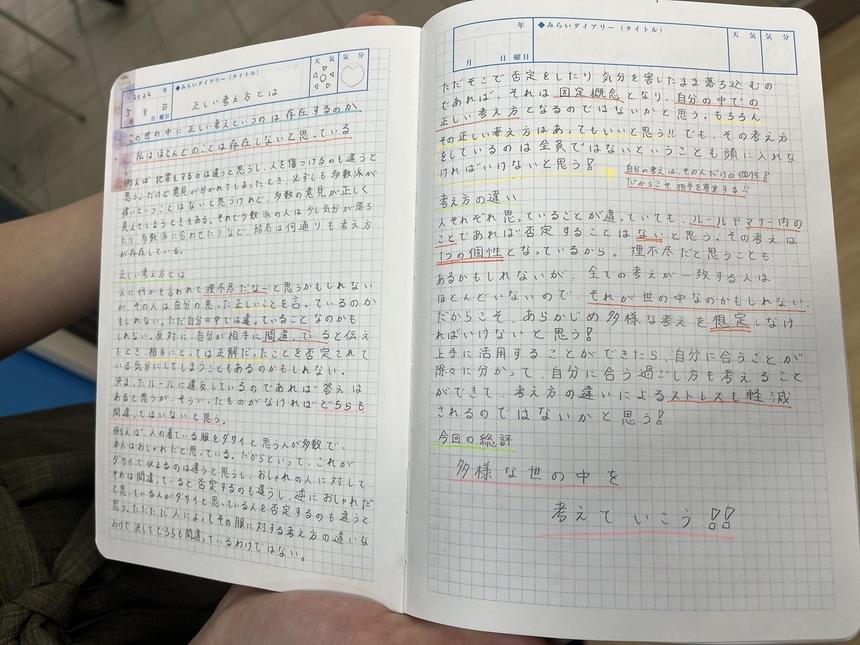 ◆みらいダイアリー（タイトル）
天 気
気 分
2022 年
5 月 8 日 日曜日
正しい考え方とは
この世の中に正しい考えというのは存在するのか
私はほとんどのことは存在しないと思っている
例えば 犯罪をするのは違うと思うし、人を傷つけるのも違うと
思う。だけど意見が分かれてしまったとき、必ずしも多数派が
偉いということはないと思うけれど、多数の意見が正しく
見えてしまうときもある。それで少数派の人は少し気分が落ち
たり 多数派に合わせたりなど 結局は何通りも考え方
が存在している。
正しい考え方とは
人に何かを言われて理不尽だなーと思うかもしれない
が、その人は自分の思った正しいことを言っているのか
もしれない。ただ自分の中では違っていることなのかも
しれない。反対に、自分が相手に間違っていると伝え
たとき、相手にとっては正解だったことを否定されて
いる気分にしてしまうこともあるのかもしれない。
決まったルールに違反しているのであれば 答えは
あると思うが、そういったものがなければどちらも
間違ってはいないと思う。
例えば、人の着ている服をダサイと思う人が多数で、
本人はおしゃれだと思っている。だからといって、これが
ダサイで収まるのは違うと思うし、おしゃれの人に対して
それは間違っていると否定するのも違うし、逆におしゃれだ
と思っている人がダサイと思っている人を否定するのも違うと
思う。ただただ人によってその服に対する考え方の違いな
わけで 決してどちらも間違っているわけではない。
年
月 日 曜日
◆みらいダイアリー（タイトル）
天 気
気 分
ただそこで否定をしたり 気分を害したまま落ち込むの
であれば、それは固定概念となり、自分の中での
正しい考え方となるのではないかと思う。もちろん
その正しい考え方はあってもいいと思う!! でも、その考え方
をしているのは全員ではないということも頭に入れな
ければいけないと思う!
自分の考えは、その人だけの個性!
だからこそ相手を尊重する!!
考え方の違い
人それぞれ思っていることが違っていても、ルールやマナー内の
ことであれば否定することはないと思う。その考えは
1つの個性となっているから。理不尽だと思うことも
あるかもしれないが、全ての考えが一致する人は
ほとんどいないので、それが世の中なのかもしれない。
だからこそ、あらかじめ多様な考えを想定しなけ
ればいけないと思う!
上手に活用することができたら、自分に合うことが
徐々に分かって、自分に合う過ごし方も考えること
ができて、考え方の違いによるストレスも軽減
されるのではないかと思う!
今回の総評
多様な世の中を
考えていこう!!